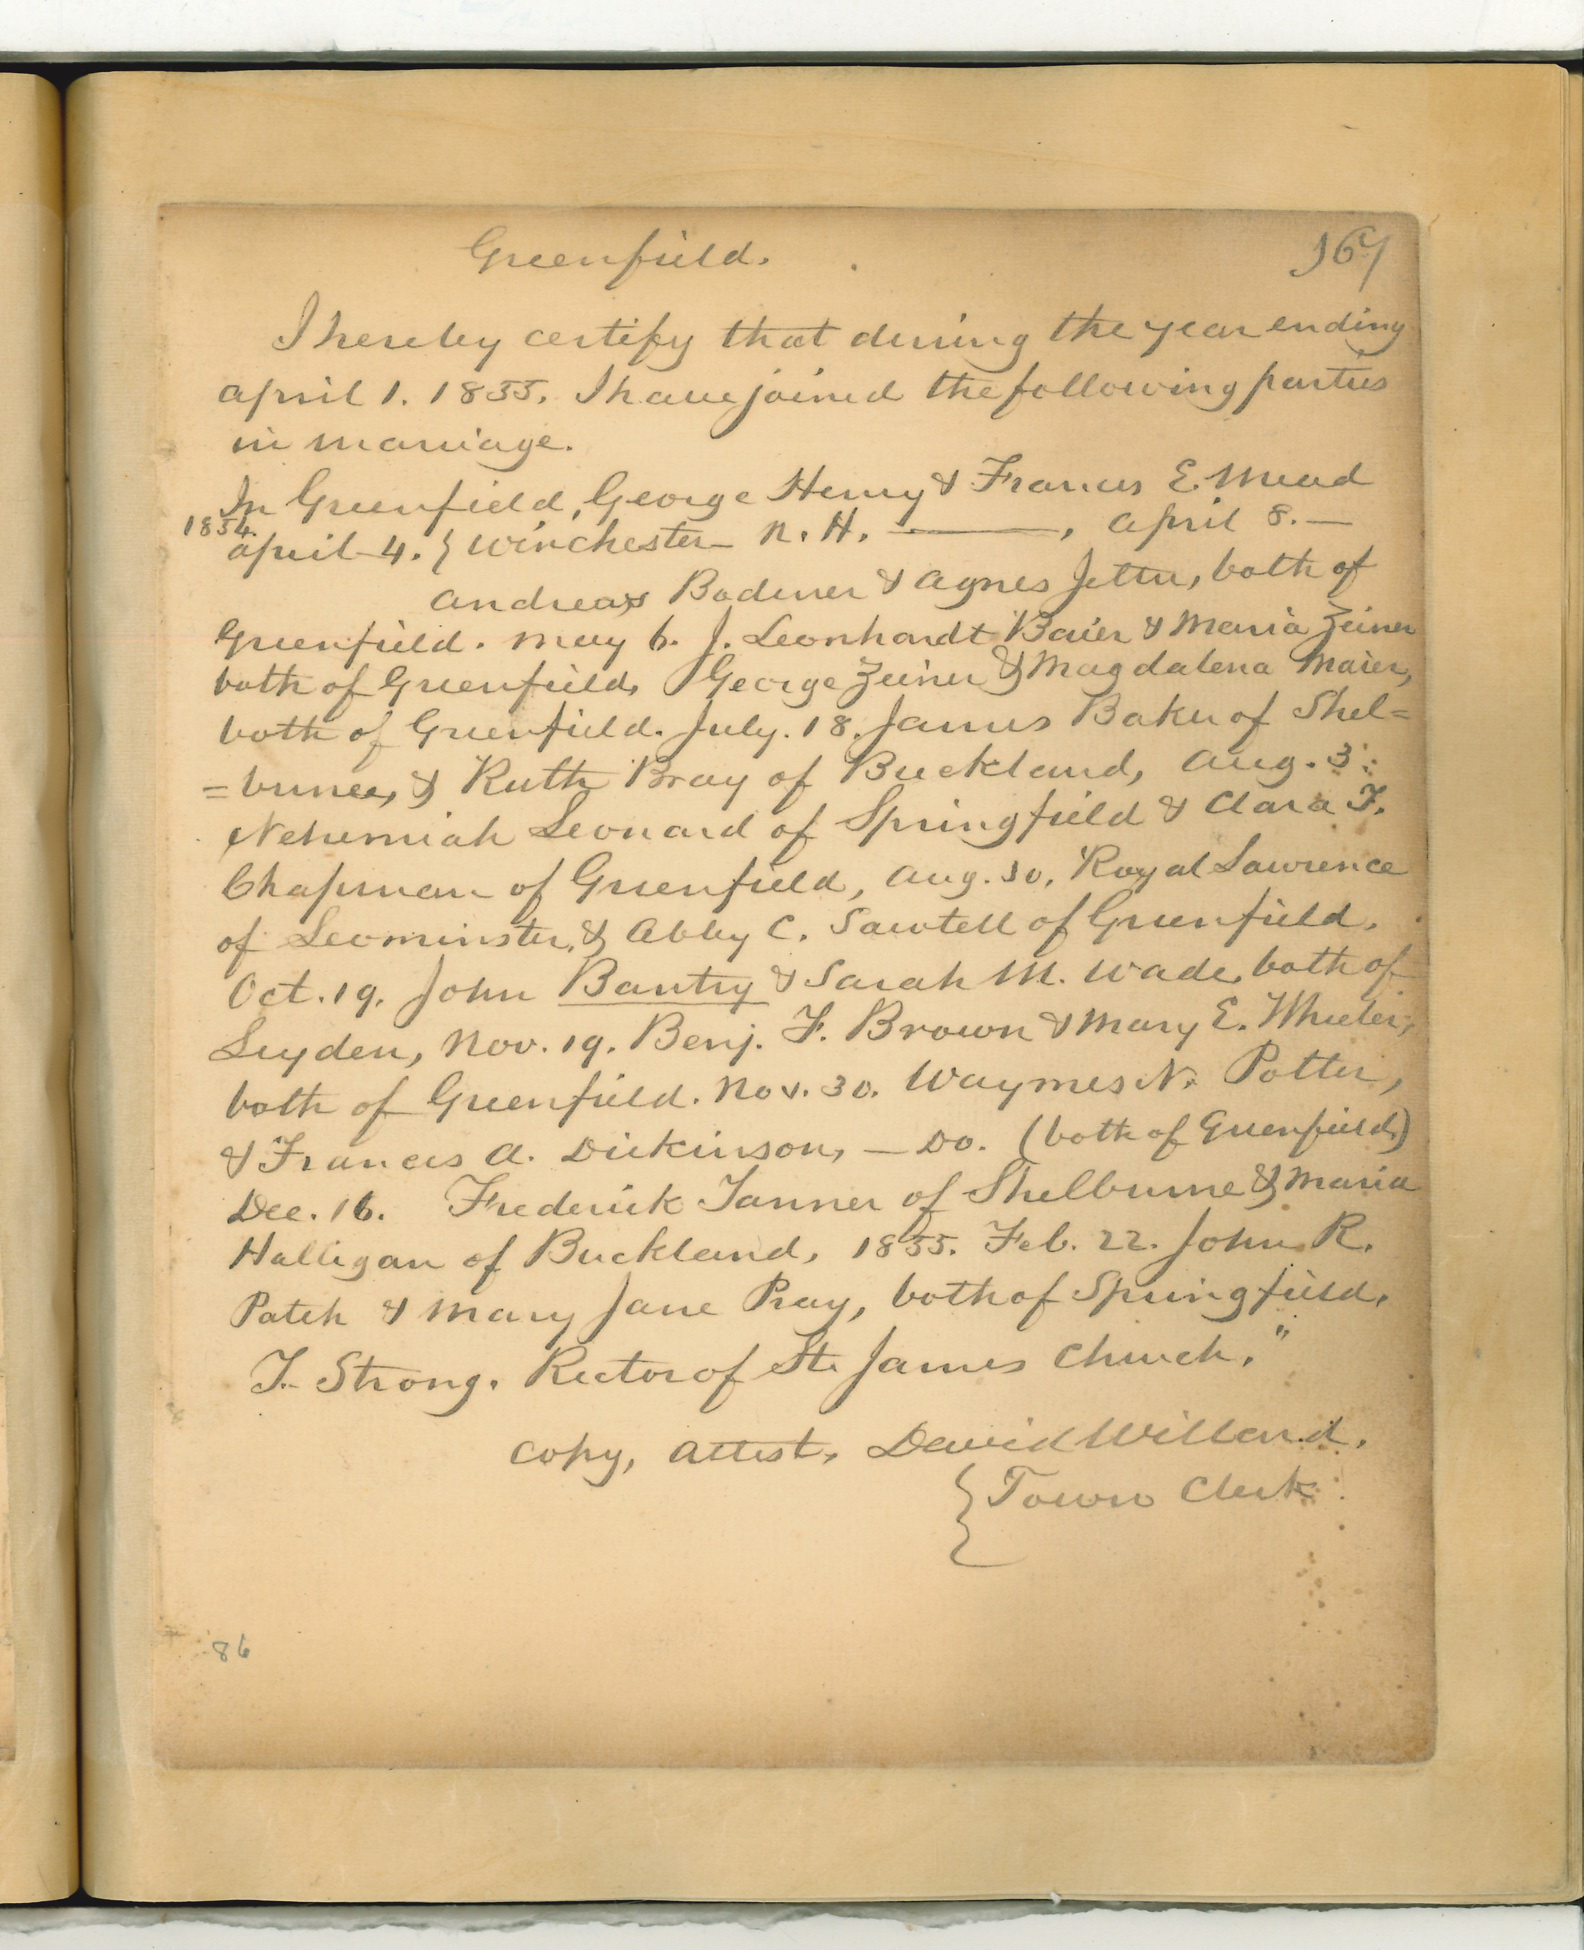 Greenfield.
167
I hereby certify that during the year ending
April 1. 1855. I have joined the following parties
in marriage.
In Greenfield, George Henry & Frances E. Mead
1854.
April 4. } Winchester N. H. ———, April 8. —
Andreas Bodener & Agnes Jetter, both of
Greenfield. May 6. J. Leonhardt Baier & Maria Zeiner
both of Greenfield, George Zeiner & Magdalena Maier,
both of Greenfield. July. 18. James Baker of Shel=
=burne, & Ruth Bray of Buckland, Aug. 3:
Nehemiah Leonard of Springfield & Clara F.
Chapman of Greenfield, Aug. 30, Royal Lawrence
of Leominster, & Abby C. Sawtell of Greenfield.
Oct. 19. John Bantry & Sarah M. Wade, both of
Leyden, Nov. 19. Benj. F. Brown & Mary E. Wheeler,
both of Greenfield. Nov. 30. Waymes N. Potter,
& Frances A. Dickinson, — Do. (both of Greenfield)
Dec. 16. Frederick Tanner of Shelburne & Maria
Halligan of Buckland, 1855. Feb. 22. John R.
Patch & Mary Jane Pray, both of Springfield.
T. Strong. Rector of St. James Church."
Copy, Attest, David Willard.
{ Town Clerk
86